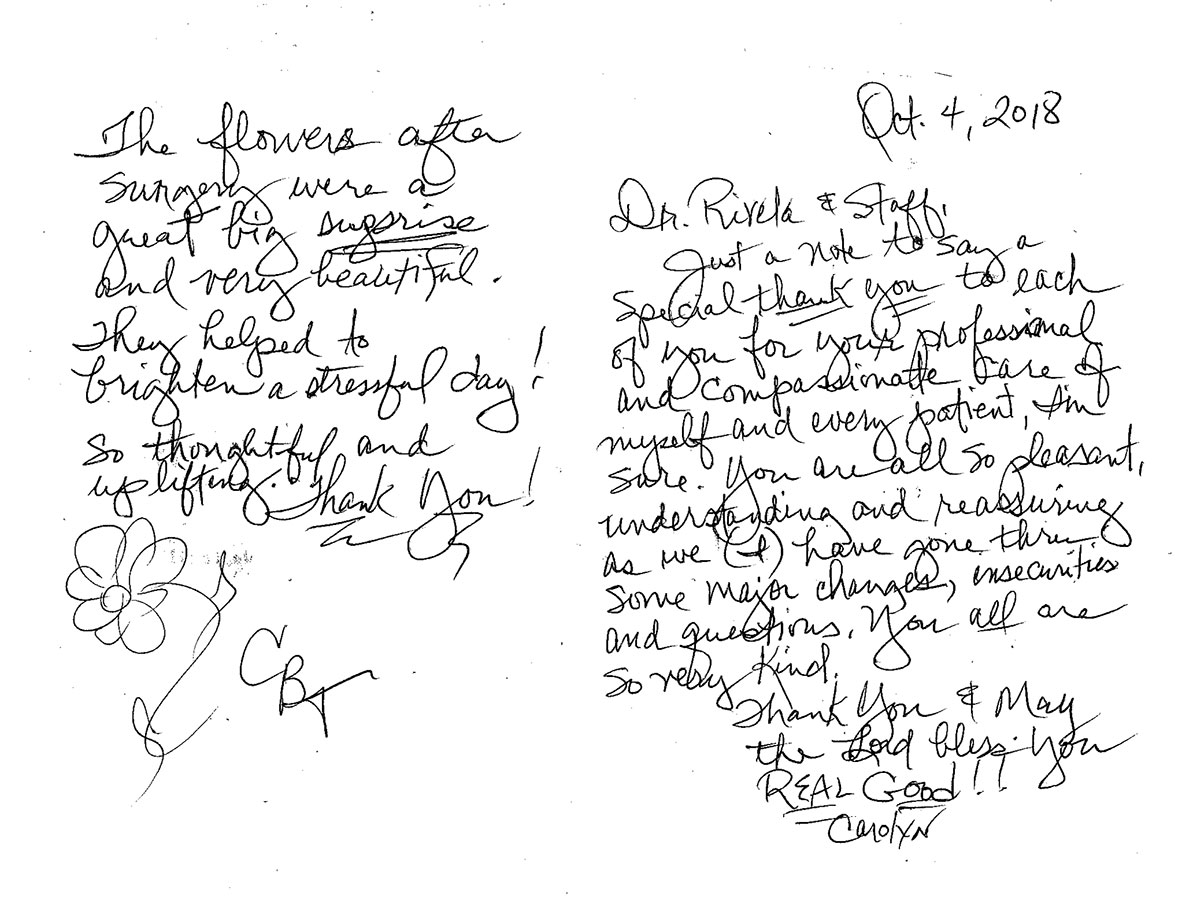 The flowers after
surgery were a
great big surprise
and very beautiful.
They helped to
brighten a stressful day!
So thoughtful and
uplifting. Thank You!
CBT
Oct. 4, 2018
Dr. Rivela & Staff,
Just a note to say a
special thank you to each
of you for your professional
and compassionate care of
myself and every patient, I'm
sure. You are all so pleasant,
understanding and reassuring
as we (I) have gone thru
some major changes, insecurities
and questions. You all are
so very kind.
Thank You & May
the Lord bless You
REAL GOOD!!
Carolyn